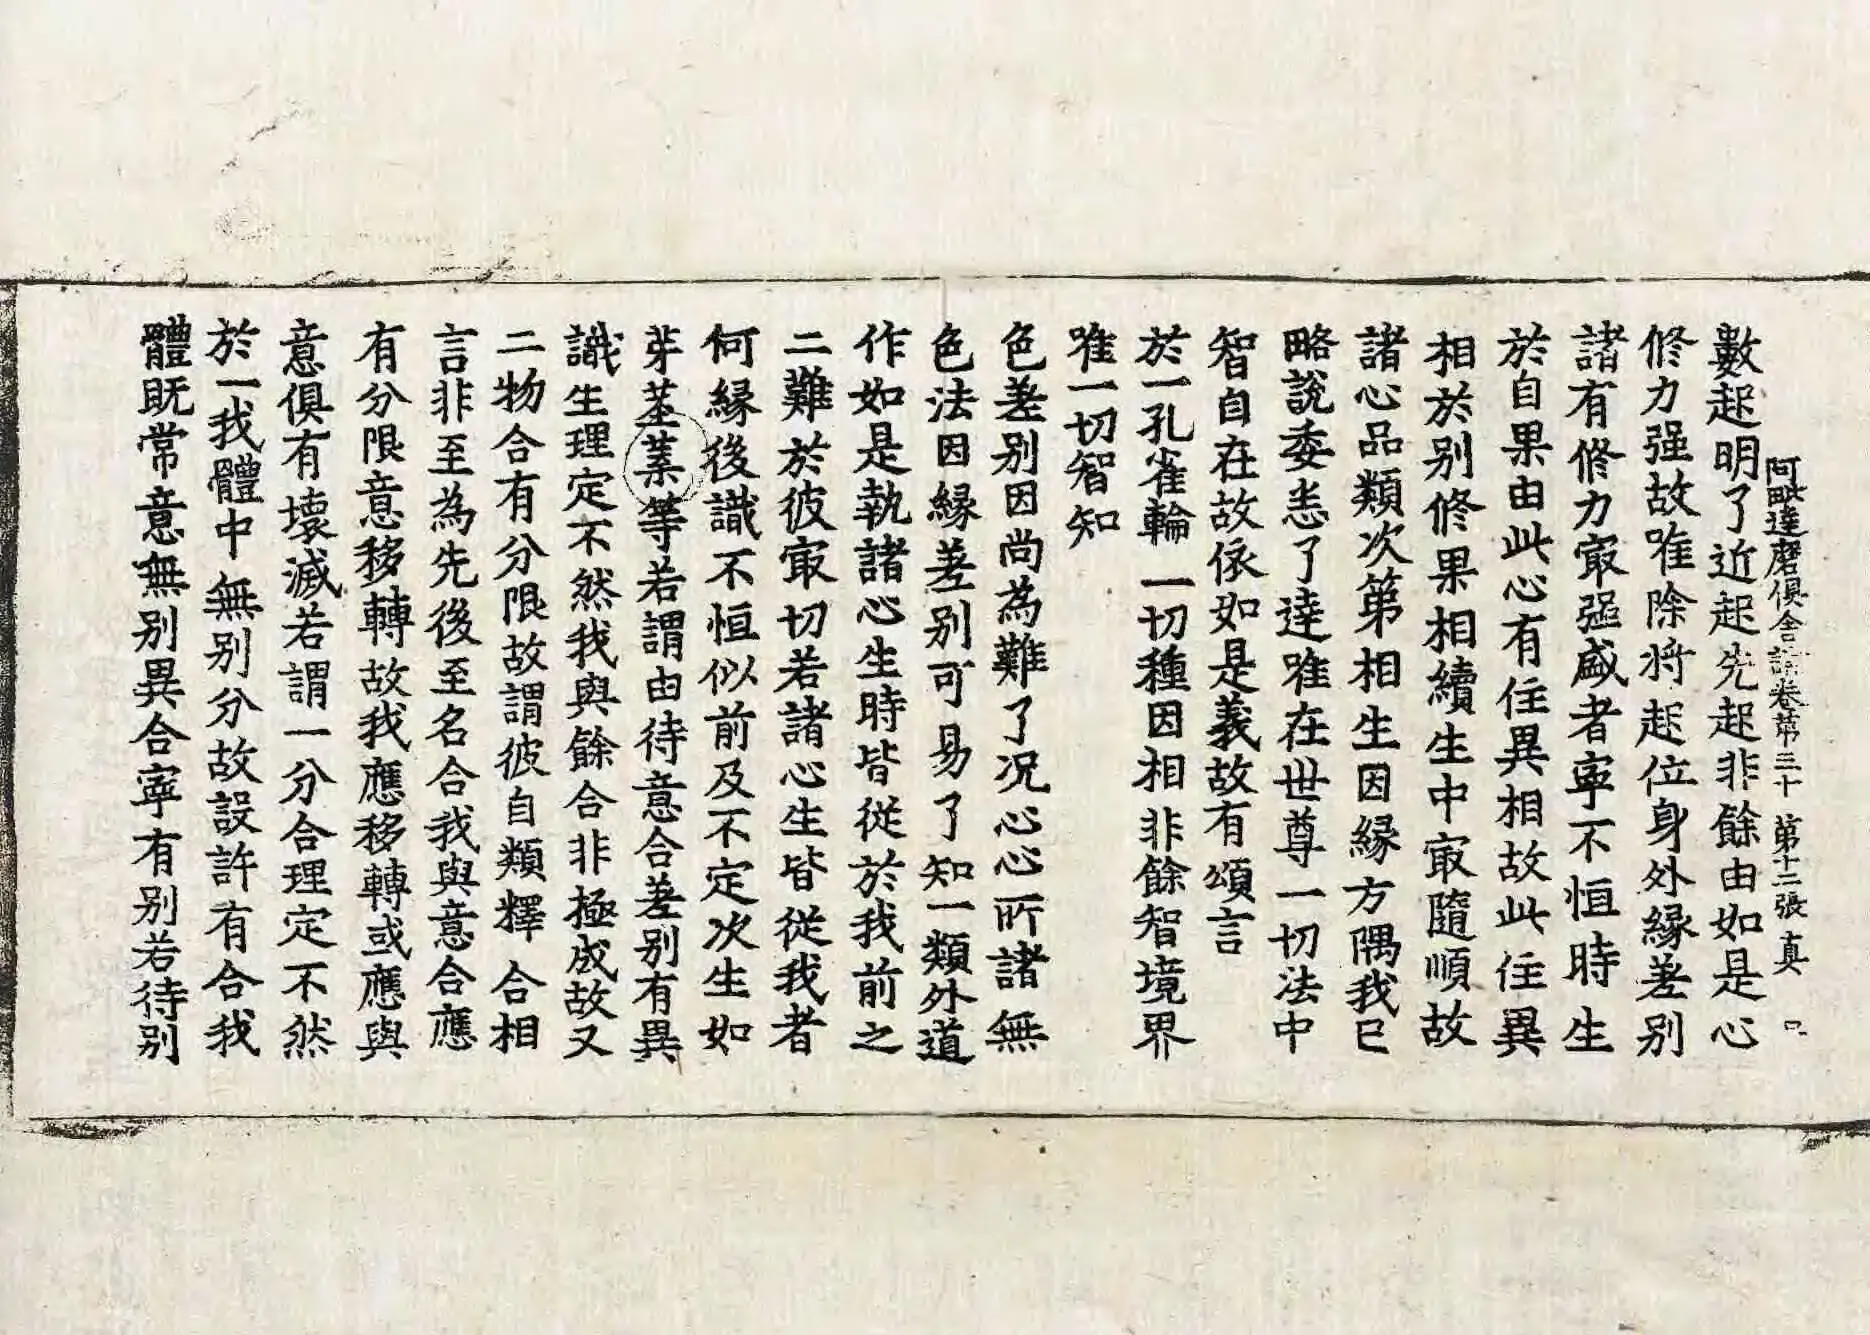 阿毗達磨俱舍論卷第三十 第十二張 真
數起明了近起先起非餘由如是心
修力强故唯除將起位身外緣差別
諸有修力㝡强盛者寧不恒時生
於自果由此心有住異相故此住異
相於別修果相續生中㝡隨順故
諸心品類次第相生因緣方隅我已
略說委悉了達唯在世尊一切法中
智自在故依如是義故有頌言
於一孔雀輪 一切種因相 非餘智境界
唯一切智知
色差別因尚為難了況心心所諸無
色法因緣差別可易了知一類外道
作如是執諸心生時皆從於我前之
二難於彼㝡切若諸心生皆從我者
何緣後識不恒似前及不定次生如
芽莖葉等若謂由待意合差別有異
識生理定不然我與餘合非極成故又
二物合有分限故謂彼自類釋合相
言非至為先後至名合我與意合應
有分限意移轉故我應移轉或應與
意俱有壞滅若謂一分合理定不然
於一我體中無別分故設許有合我
體既常意無別異合寧有別若待別